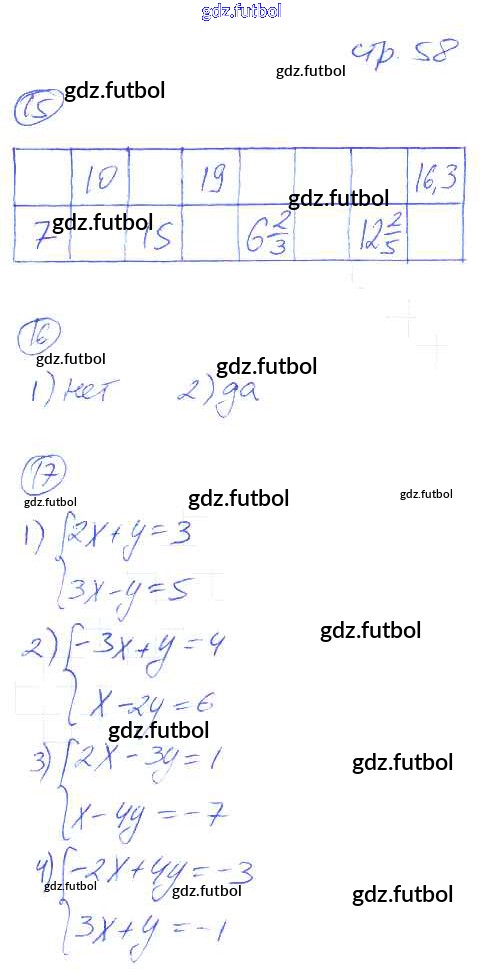 gdz.futbol
стр. 58
gdz.futbol
15
gdz.futbol
10 19 16,3
gdz.futbol
7 15 6 2/3 12 2/5
gdz.futbol
16
gdz.futbol
gdz.futbol
1) нет 2) да
17
gdz.futbol gdz.futbol gdz.futbol
1) { 2x + y = 3
3x - y = 5
gdz.futbol
2) { -3x + y = 4
x - 2y = 6
gdz.futbol
3) { 2x - 3y = 1
gdz.futbol
x - 4y = -7
4) { -2x + 4y = -3
gdz.futbol gdz.futbol gdz.futbol
3x + y = -1